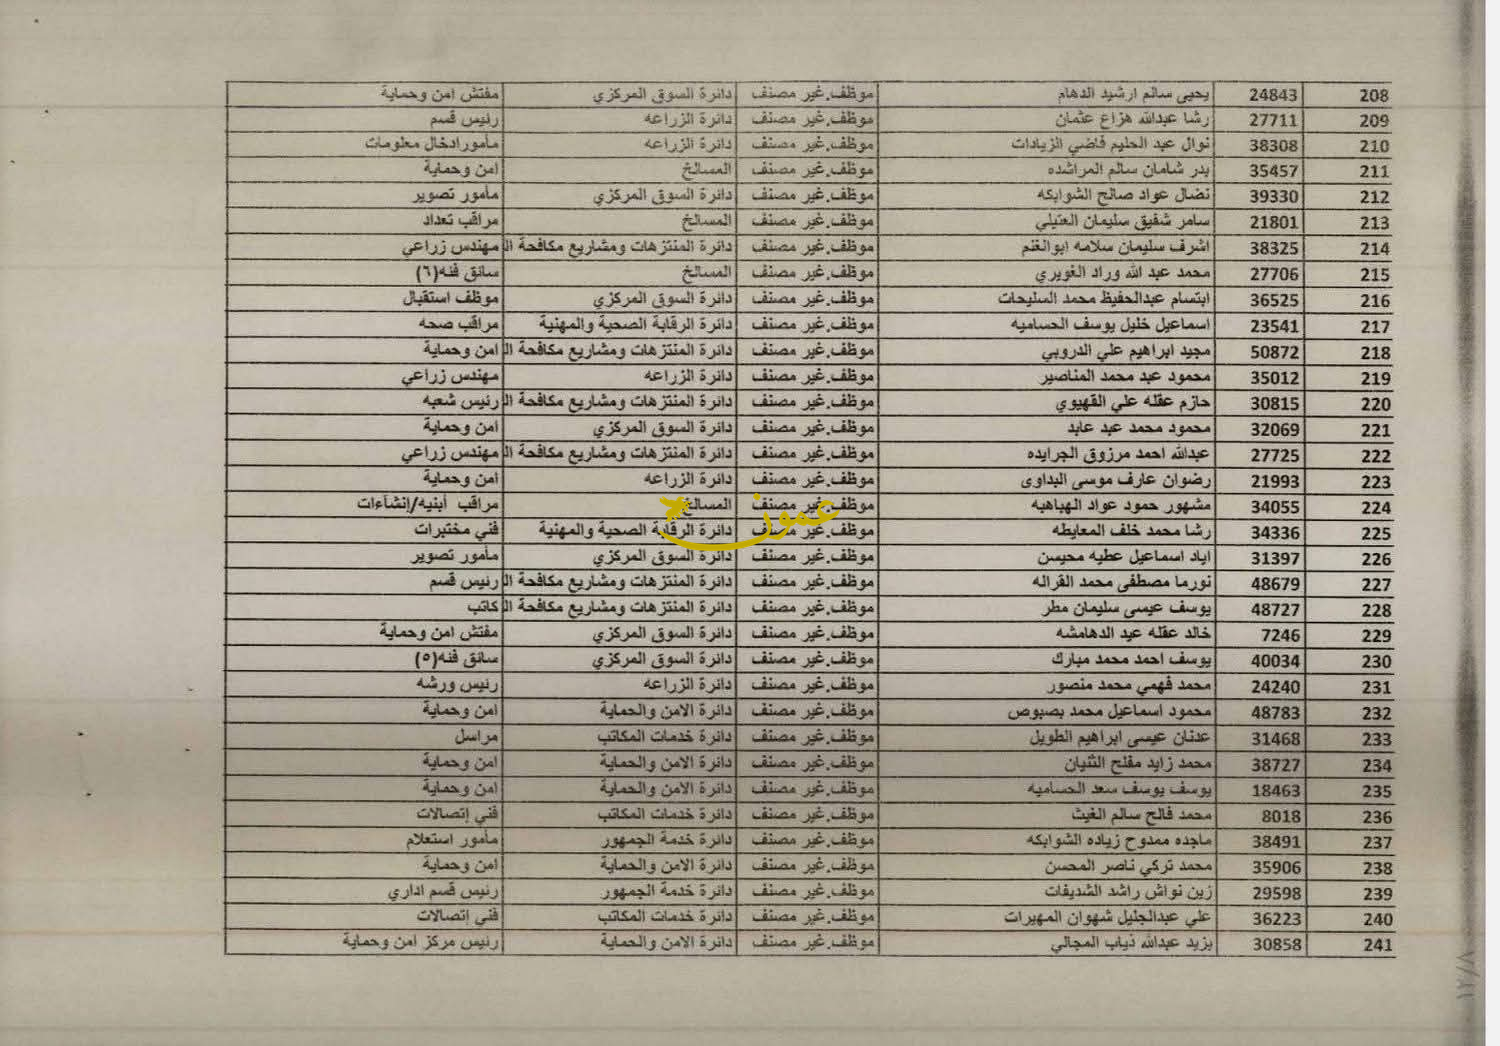 208 24843 يحيى سالم ارشيد الدهام موظف.غير مصنف دائرة السوق المركزي مفتش امن وحماية
209 27711 رشا عبدالله هزاع عثمان موظف.غير مصنف دائرة الزراعه رئيس قسم
210 38308 نوال عبد الحليم فاضي الزيادات موظف.غير مصنف دائرة الزراعه مأمورادخال معلومات
211 35457 بدر شامان سالم المراشده موظف.غير مصنف المسالخ امن وحماية
212 39330 نضال عواد صالح الشوابكه موظف.غير مصنف دائرة السوق المركزي مأمور تصوير
213 21801 سامر شفيق سليمان العتيلي موظف.غير مصنف المسالخ مراقب تعداد
214 38325 اشرف سليمان سلامه ابوالغنم موظف.غير مصنف دائرة المنتزهات ومشاريع مكافحة ال مهندس زراعي
215 27706 محمد عبد الله وراد الغويري موظف.غير مصنف المسالخ سائق فئه(٦)
216 36525 ابتسام عبدالحفيظ محمد السليحات موظف.غير مصنف دائرة السوق المركزي موظف استقبال
217 23541 اسماعيل خليل يوسف الحساميه موظف.غير مصنف دائرة الرقابة الصحية والمهنية مراقب صحه
218 50872 مجيد ابراهيم علي الدروبي موظف.غير مصنف دائرة المنتزهات ومشاريع مكافحة ال امن وحماية
219 35012 محمود عبد محمد المناصير موظف.غير مصنف دائرة الزراعه مهندس زراعي
220 30815 حازم عقله علي القهيوي موظف.غير مصنف دائرة المنتزهات ومشاريع مكافحة ال رئيس شعبه
221 32069 محمود محمد عبد عابد موظف.غير مصنف دائرة السوق المركزي امن وحماية
222 27725 عبدالله احمد مرزوق الجرايده موظف.غير مصنف دائرة المنتزهات ومشاريع مكافحة ال مهندس زراعي
223 21993 رضوان عارف موسى البداوى موظف.غير مصنف دائرة الزراعه امن وحماية
224 34055 مشهور حمود عواد الهباهبه موظف.غير مصنف المسالخ مراقب أبنيه/إنشآءات
225 34336 رشا محمد خلف المعايطه موظف.غير مصنف دائرة الرقابة الصحية والمهنية فني مختبرات
226 31397 اياد اسماعيل عطيه محيسن موظف.غير مصنف دائرة السوق المركزي مأمور تصوير
227 48679 نورما مصطفى محمد القراله موظف.غير مصنف دائرة المنتزهات ومشاريع مكافحة ال رئيس قسم
228 48727 يوسف عيسى سليمان مطر موظف.غير مصنف دائرة المنتزهات ومشاريع مكافحة ال كاتب
229 7246 خالد عقله عيد الدهامشه موظف.غير مصنف دائرة السوق المركزي مفتش امن وحماية
230 40034 يوسف احمد محمد مبارك موظف.غير مصنف دائرة السوق المركزي سائق فئه(٥)
231 24240 محمد فهمي محمد منصور موظف.غير مصنف دائرة الزراعه رئيس ورشه
232 48783 محمود اسماعيل محمد بصبوص موظف.غير مصنف دائرة الامن والحماية امن وحماية
233 31468 عدنان عيسى ابراهيم الطويل موظف.غير مصنف دائرة خدمات المكاتب مراسل
234 38727 محمد زايد مفلح الثنيان موظف.غير مصنف دائرة الامن والحماية امن وحماية
235 18463 يوسف يوسف سعد الحساميه موظف.غير مصنف دائرة الامن والحماية امن وحماية
236 8018 محمد فالح سالم الغيث موظف.غير مصنف دائرة خدمات المكاتب فني إتصالات
237 38491 ماجده ممدوح زياده الشوابكه موظف.غير مصنف دائرة خدمة الجمهور مأمور استعلام
238 35906 محمد تركي ناصر المحسن موظف.غير مصنف دائرة الامن والحماية امن وحماية
239 29598 زين نواش راشد الشديفات موظف.غير مصنف دائرة خدمة الجمهور رئيس قسم اداري
240 36223 علي عبدالجليل شهوان المهيرات موظف.غير مصنف دائرة خدمات المكاتب فني إتصالات
241 30858 يزيد عبدالله ذياب المجالي موظف.غير مصنف دائرة الامن والحماية رئيس مركز امن وحماية
عمون